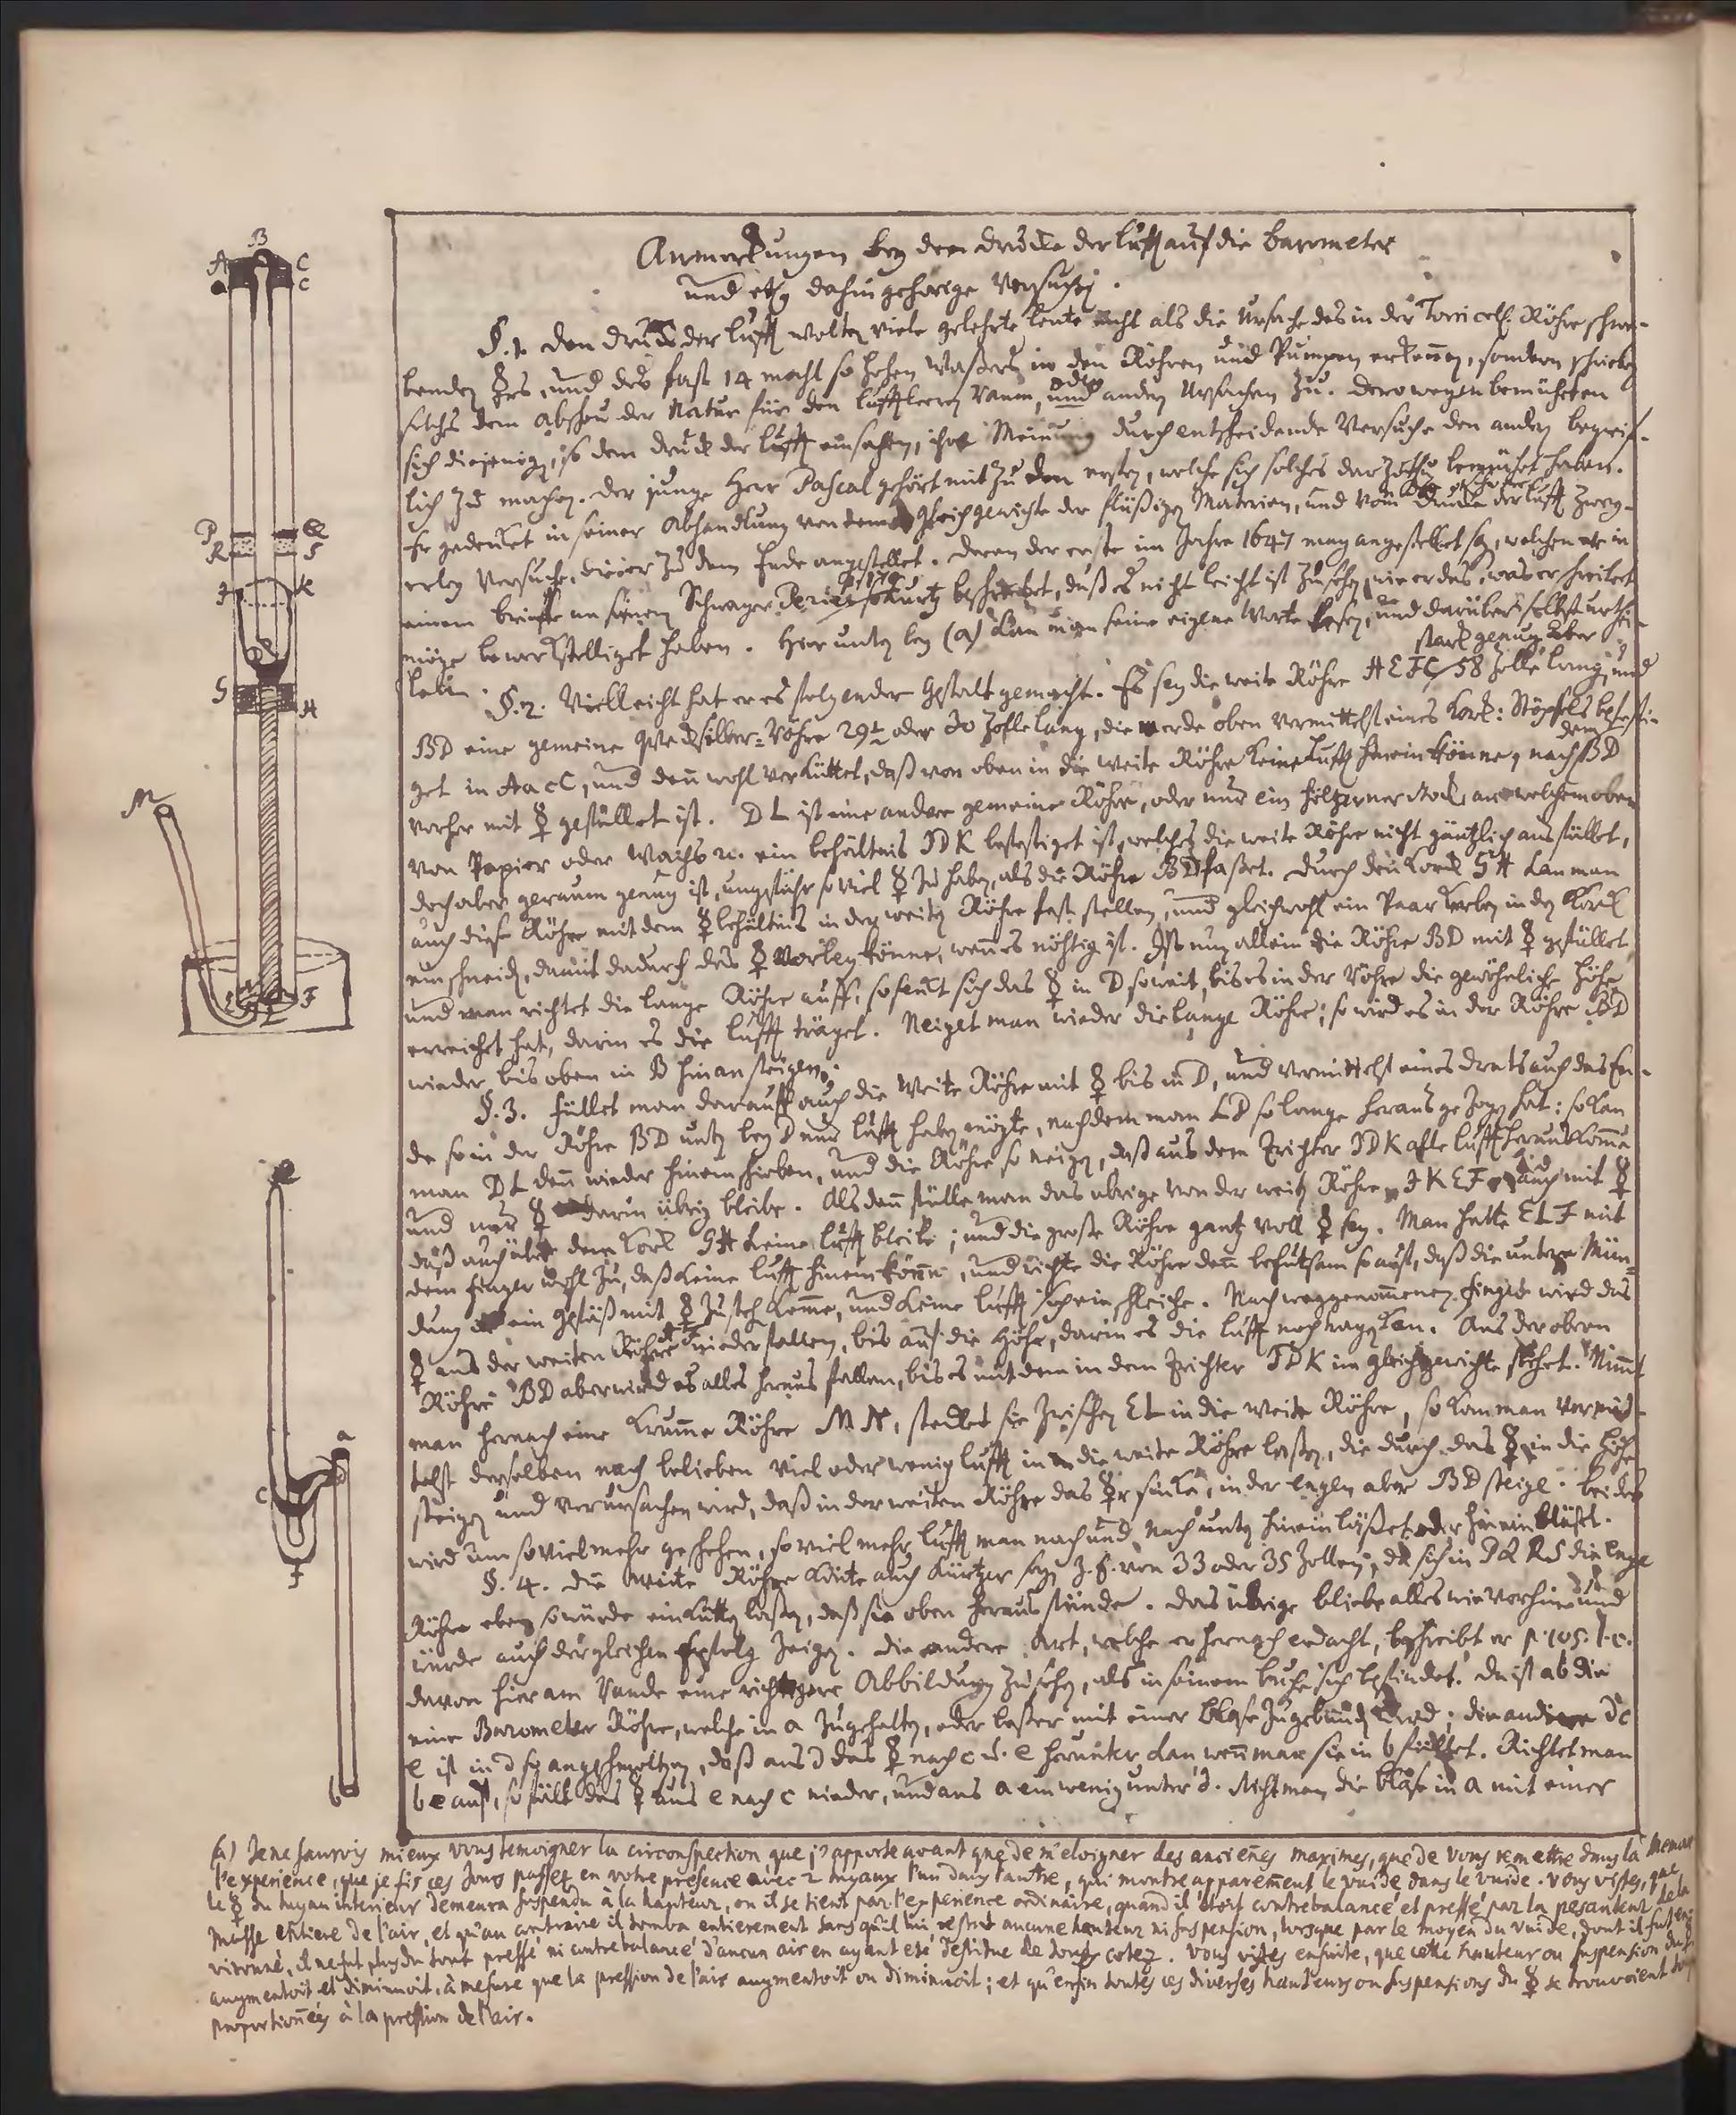 Anmerkungen bey dem Drucke der Lufft auf die Barometer
und etzg dahin gehörige Versuche.
§. 1. Den Druck der Lufft wolten viele gelehrte leute nicht als die Ursache des in der Torricell. Röhre schwe-
benden ☿rs, und des fast 14 mahl so hohen Waßers in den Röhren und Pumpen erkennen, sondern schrieben
solches dem Abscheu der Natur für den lufftleeren Raum, und oder andern Ursachen zu. Derowegen bemüheten
sich diejenigen, so den Druck der Lufft einsahen, ihre Meinung durch entscheidende Versuche den andern begreif-
lich zu machen. Der junge Herr Pascal gehört mit zu den ersten, welche sich solches darzuthun bemühet haben.
Er gedencket in seiner Abhandlung von dem Gleichgewichte der flüßigen Materien, und vom Drucke der Lufft zwey-
erley Versuche, die er zu dem Ende angestellet. Deren der erste im Jahre 1647 mag angestellet seyn, welchen er in
einem briefe an seinen Schwager Perier so kurtz beschreibet, daß es nicht leicht ist zu sehen, wie er das, was er schreibet
möge bewerckstelliget haben. Hier unten bey (a) kan man seine eigene Worte lesen, und darüber selbst urthei-
len. §. 2. Vielleicht hat er es folgender Gestalt gemacht. Es sey die weite Röhre AEFC stark genug über 58 Zolle lang, und
BD eine gemeine Quecksilber-Röhre 29½ oder 30 Zolle lang, die werde oben vermittelst eines Kork-Stöpsels befesti-
get in AacC, und denn wohl verküttet, daß von oben in die weite Röhre keine Lufft herein könne, nachdem BD
vorher mit ☿ gefüllet ist. DL ist eine andere gemeine Röhre, oder nur ein höltzerner Stock, an welchem oben
von Papier oder Wachs ein behältnis IDK befestiget ist, welches die weite Röhre nicht gäntzlich ausfüllet,
doch aber geraum genug ist, ungefähr so viel ☿ zu haben, als die Röhre BD faßet. Durch den Kork GH kan man
auch diese Röhre mit dem ☿behältnis in der weiten Röhre fest stellen, und gleichwohl ein Paar Kerben in den Kork
einschneiden, damit dadurch das ☿ vorbey könne, wenn es nöhtig ist. Ist nun allein die Röhre BD mit ☿ gefüllet,
und man richtet die lange Röhre auff, so senkt sich das ☿ in D so weit, bis es in der Röhre die gewöhnliche Höhe
erreichet hat, darin es die Lufft träget. Neiget man wieder die lange Röhre; so wird es in der Röhre BD
wieder bis oben in B hinan steigen.
§. 3. Füllet man darauff auch die weite Röhre mit ☿ bis in D, und vermittelst eines Drats auch das En-
de so in der Röhre BD unten bey D nur Lufft haben mögte, nachdem man LD so lange heraus gezogen hat: so kan
man DL denn wieder hinein schieben, und die Röhre so neigen, daß aus dem Trichter IDK alle Lufft heraus komme
und nur ☿ darin übrig bleibe. Alsdenn fülle man das übrige von der weiten Röhre IKEF auch mit ☿
daß auch über dem Kork GH keine Lufft bleibe; und die große Röhre gantz voll ☿ sey. Man halte ELF mit
dem Finger wohl zu, daß keine Lufft hinein könne, und richte die Röhre denn behutsam so auf, daß die untere Mün-
dung in ein Gefäß mit ☿ zu steh. komme, und keine Lufft sich ein schleiche. Nach weggenommenen Finger wird das
☿ aus der weiten Röhre nieder fallen, bis auf die Höhe, darin es die Lufft noch tragen kan. Aus der obern
Röhre BD aber wird es alles heraus fallen, bis es mit dem in dem Trichter IDK im gleichgewichte stehet. Nimmt
man hernach eine krumme Röhre MN, stecket sie zwischen EL in die weite Röhre, so kan man vermit-
telst derselben nach belieben viel oder wenig Lufft in die weite Röhre laßen, die durch das ☿ in die Höhe
steigen und verursachen wird, daß in der weiten Röhre das ☿r sincke, in der engen aber BD steige. Beides
wird um so viel mehr geschehen, so viel mehr Lufft man nach und nach unten hinein läßet oder hinein bläset.
§. 4. Die weite Röhre könte auch kürtzer seyn z. E. von 33 oder 35 Zollen, da sich in PQRS die enge
Röhre eben so würde einkütten laßen, daß sie oben heraus stünde. Das übrige bliebe alles wie vorhin und
würde auch dergleichen Erfolg zeigen. Die andere Art, welche er hernach erdacht, beschreibt er p. 105. l. c.
davon hier am Rande eine richtigere Abbildung zu sehen, als in seinem buche sich befindet. Da ist ab die
eine Barometer Röhre, welche in a zugehalten, oder beßer mit einer Blase zugebunden wird; die andere dc
e ist in d so angeschmoltzen, daß aus d das ☿ nach c u. e herunter kan wenn man sie in b füllet. Richtet man
be auf, so fällt das ☿ aus e nach c nieder, und aus a ein wenig unter d. Sticht man die Blase in a mit einer
(a) Je ne saurois mieux vous temoigner la circonspection que j'apporte avant que de m'eloigner des anciennes maximes, que de vous remettre dans la memoire
l'experience, que je fis ces jours passez en votre presence avec 2 tuyaux l'un dans l'autre, qui montre apparemment le vuide dans le vuide. Vous vistes, que
le ☿ du tuyau interieur demeura suspendu à la hauteur, ou il se tient par l'experience ordinaire, quand il étoit contrebalancé et pressé par la pesanteur de la
masse entiere de l'air, et qu'au contraire il tomba entierement sans qu'il lui restat aucune hauteur ni suspension, lorsque par le moyen du vuide, dont il fut en-
vironné, il ne fut plus du tout pressé ni contrebalancé d'aucun air en ayant eté destitue de tous cotez. Vous vistes ensuite, que cette hauteur ou suspension du ☿
augmentoit et diminuoit, à mesure que la pression de l'air augmentoit ou diminuoit; et qu'enfin toutes ces diverses hauteurs ou suspensions du ☿ se trouvoient toujours
proportionnées à la pression de l'air.
A B C
a c
P Q
R S
I K
D
G H
M
E L F
e
a
c d
f
b